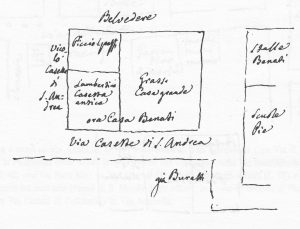 Belvedere
Vico
lo
Casette
di
S. An
drea
Lambertini
Casetta
antica
Grassi
Casa grande
ora Casa Benati
Stalla
Benati
Scuole
Pie
Via Casette di S. Andrea
già Buratti